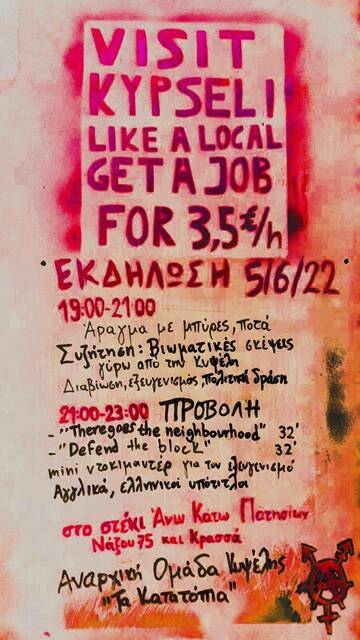 VISIT
KYPSELI
LIKE A LOCAL
GET A JOB
FOR 3,5€/h
ΕΚΔΗΛΩΣΗ 5/6/22
19:00-21:00
Άραγμα με μπύρες, ποτά
Συζήτηση: Βιωματικές σκέψεις
γύρω από την Κυψέλη
Διαβίωση, εξευγενισμός, πολιτική δράση
21:00-23:00 ΠΡΟΒΟΛΗ
-"Theregoes the neighbourhood" 32'
-"Defend the block" 32'
mini ντοκιμαντέρ για τον εξευγενισμό
Αγγλικά, ελληνικοί υπότιτλοι
στο στέκι Άνω Κάτω Πατησίων
Νάξου 75 και Κρασσά
Αναρχική Ομάδα Κυψέλης
"Τα Κατατόπια"